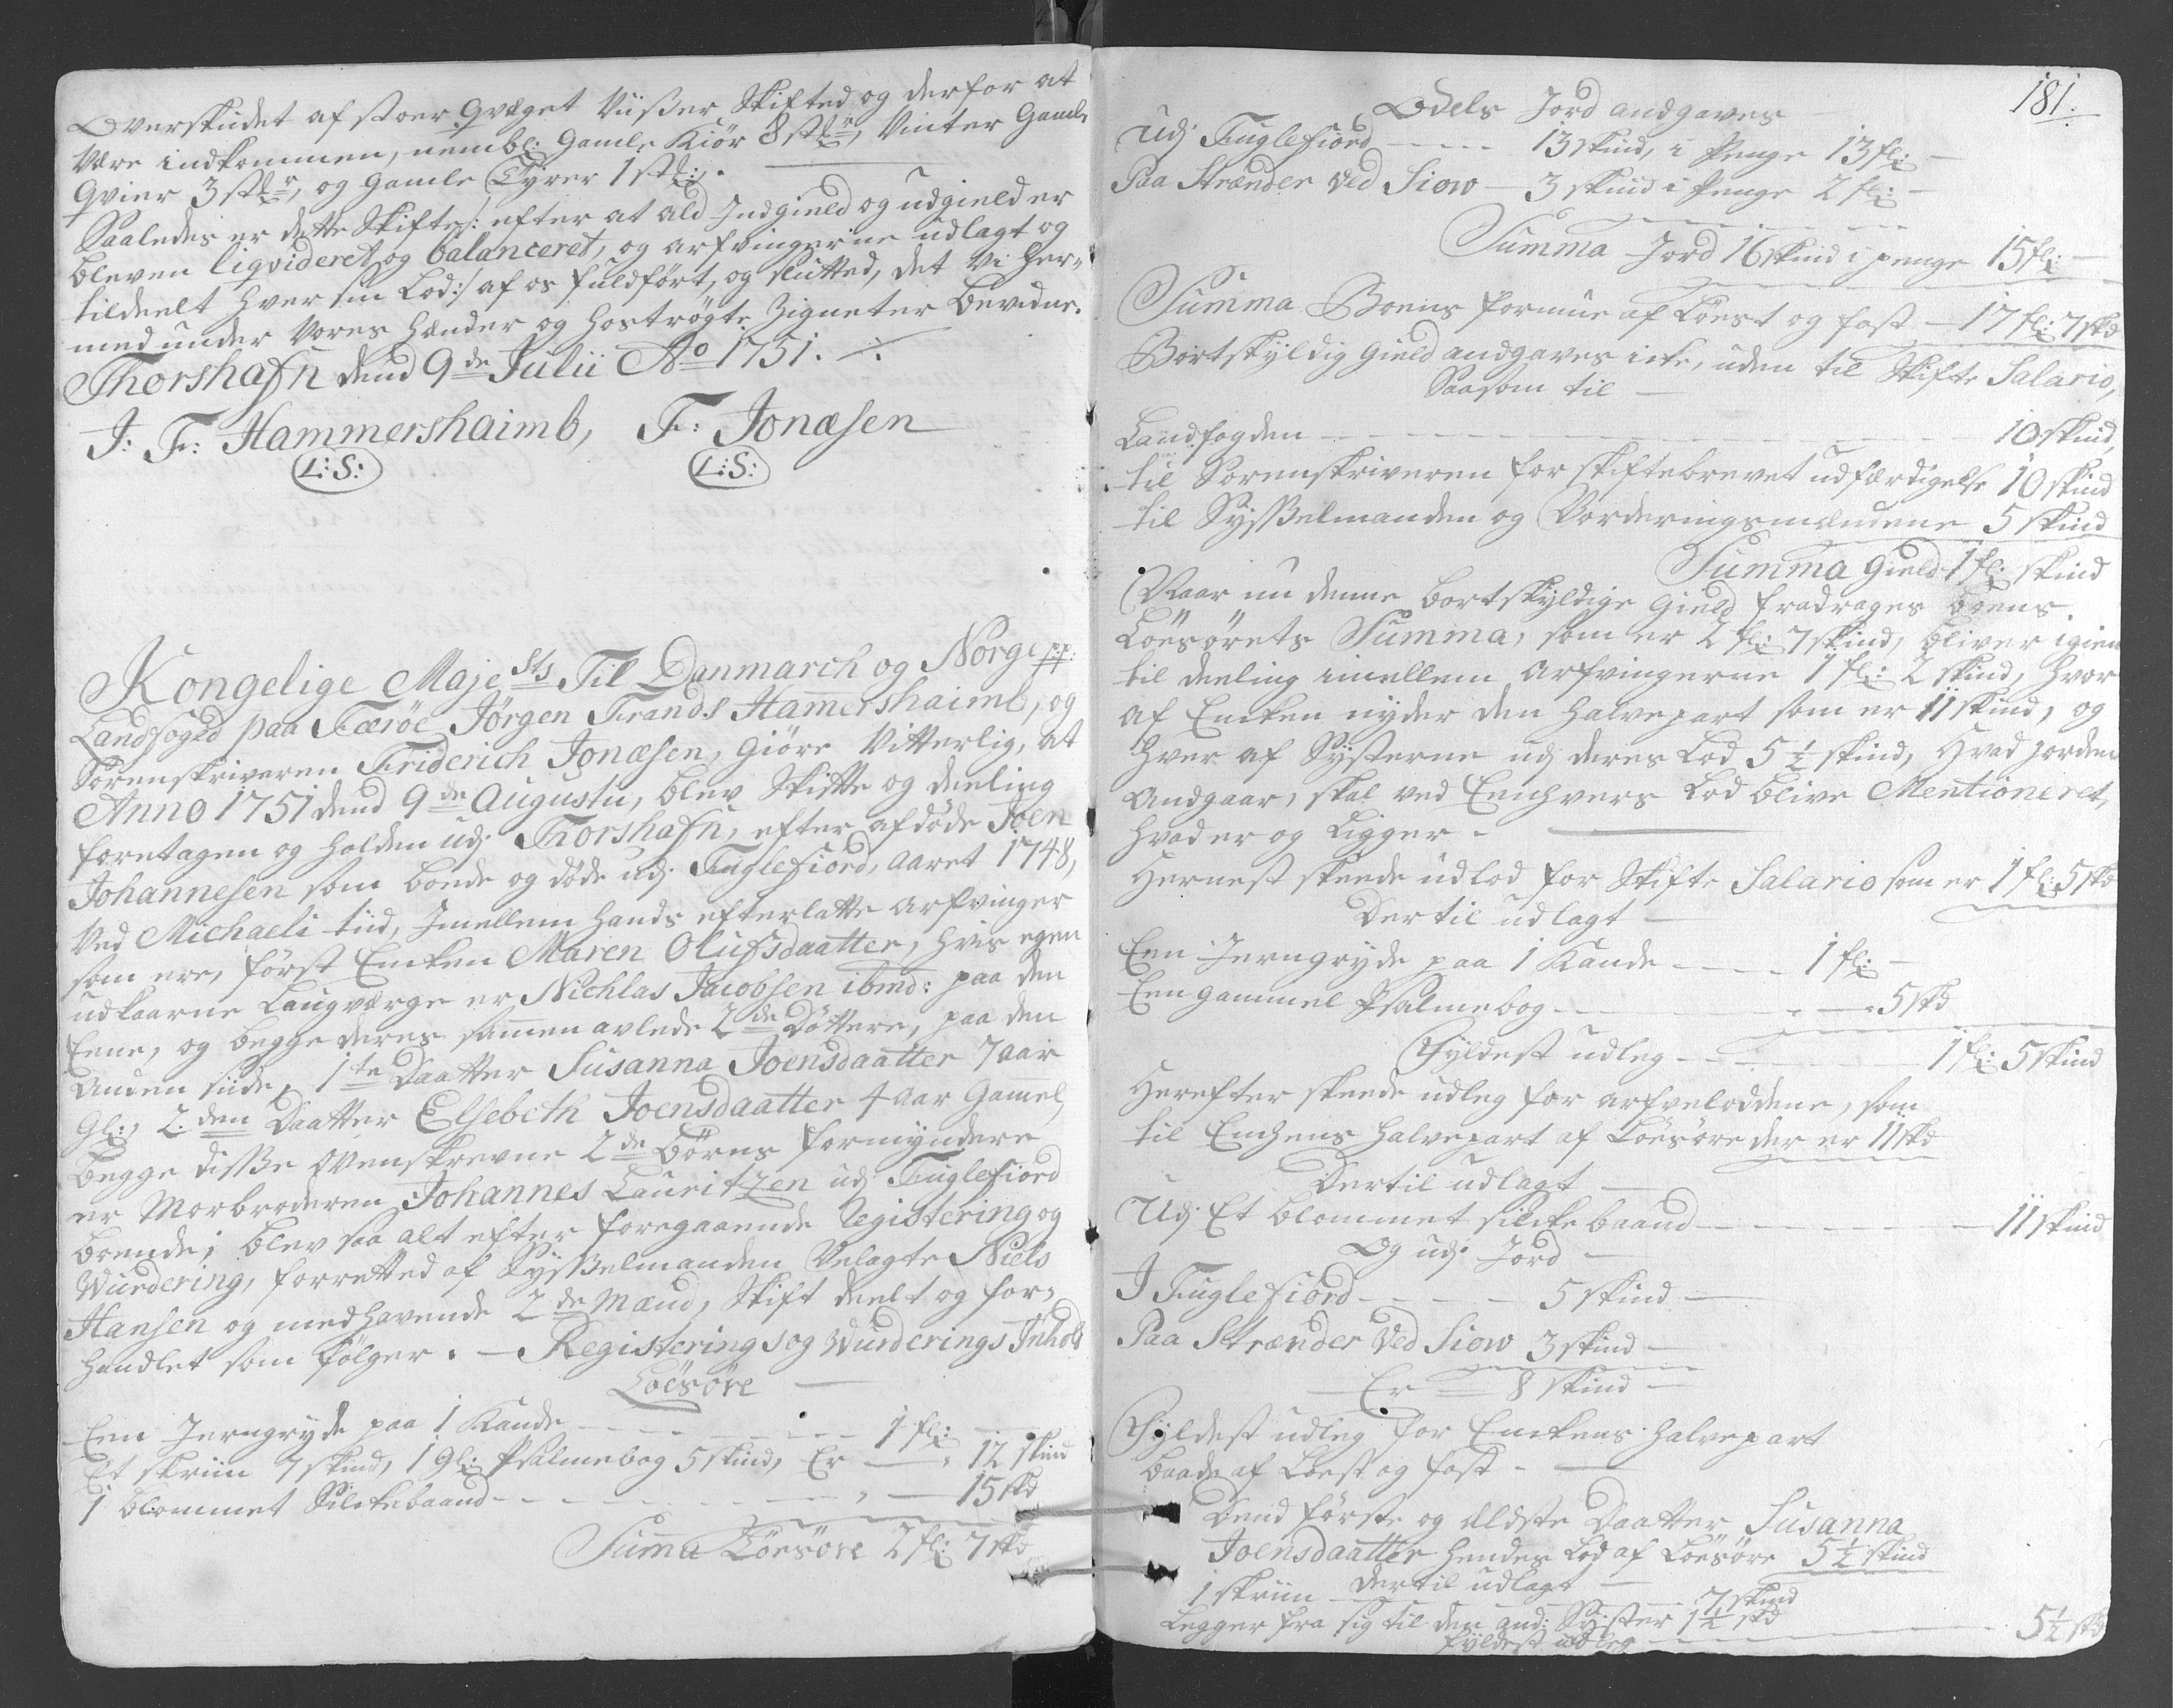 Overskudet af stoer Qvæget viiser Skifted og derfor at
være indkommen, nembl: Gamle Kiör 8 stkr, Vinter Gamle
Qvier 3 stkr, og Gamle Tÿrer 1 stk:.
Saaledes er dette Skifte /: efter at ald Indgield og udgield er
bleven liqvideret og balanceret, og arfvingerne udlagt og
tildeelt hver sin Lod :/ af os fuldfört, og slutted, det vi her-
med under vores hænder og hoströgte Zigneter bevidner.
Thorshafn dend 9de Julii Ao 1751.
J: F: Hammershaimb, F: Jonæsen
L:S: L:S:
Kongelige Majests Til Danmarch og Norge pp:
Landfoged paa Færöe Jörgen Frands Hammershaimb, og
Sorenskriveren Friderich Jonæsen, Giöre Vitterlig, at
Anno 1751 dend 9de Augustii, blev Skifte og deeling
foretagen og holden udj Thorshafn, efter afdöde Joen
Johannesen som boede og döde udj Fuglefiord, aaret 1748,
ved Michaeli tiid, Imellem hands efterlatte arfvinger
som ere, först Encken Maren Olufsdaatter, hvis egen
udkaarne Laugværge er Nichlas Jacobsen ibmd: paa den
Eene, og begge deres sammen avlede 2de Döttere, paa den
anden siide, 1te Daatter Susanna Joensdaatter 7 aar
Gl:, 2den Daatter Elsebeth Joensdaatter 4 aar Gamel,
begge disse ovenskrevne 2de börns formÿndere
er Morbroderen Johannes Lauritzen udj Fuglefiord
boende; blev saa alt efter foregaaende Registering og
Wurdering, forretted af Sÿsselmanden Velagte Niels
Hansen og medhavende 2de Mænd, Skift deelt og for-
handlet som fölger. – Registerings og Wurderings Inhold
Löesöre
Een Jerngrÿde paa 1 Kande – – – 1 fl:
Et skriin 7 skind, 1 Gl: Psalmebog 5 skind, Er – 12 skind
1 blommet Silckebaand – – – 15 skd
Suma Löesöre 2 fl: 7 skd
181.
Odels Jord andgaves
Udj Fuglefiord – – – 13 skind, i Penge 13 fl:
Paa Strænder ved Siow – 3 skind i Penge 2 fl:
Summa Jord 16 skind i penge 15 fl:
Summa Boens formue af Löest og fast – 17 fl: 7 skd
Bortskÿldig Gield andgaves icke, uden til Skifte Salario,
Saasom til
Landfogden – – – 10 skind,
til Sorenskriveren for skiftebrevet udfærdigelse 10 skind
til Sÿsselmanden og Vorderingsmændene 5 skind
Summa Gield 1 fl: 5 skind
Naar nu denne bortskÿldige Gield fradrages boens
Löesörets Summa, som er 2 fl: 7 skind, bliver igien
til deeling imellem arfvingerne 1 fl: 2 skind, hvor
af Encken nÿder den halvepart som er 11 skind, og
hver af Sÿsterne udj deres Lod 5 1/2 skind, Hvad Jorden
andgaar, skal ved Eenhvers Lod blive Mentioneret,
hvad er og Ligger –
Hernest skeede udlod for Skifte Salario som er 1 fl: 5 skd
Dertil udlagt
Een Jerngrÿde paa 1 Kande – – – 1 fl:
Een gammel Psalmebog – – – 5 skd
Fÿldest udleg – – – 1 fl: 5 skind
Herefter skeede udleg for arfvelodderne, som
til Enchens halvepart af Löesöre der er 11 skd
Dertil udlagt
Udj Et blommet silcke baand – – – 11 skind
Og udj Jord
I Fuglefiord – – – 5 skind
Paa Strænder ved Siow 3 skind
Er – 8 skind
Fÿldest udleg for Enckens halvepart
baade af Löest og fast –
Dend förste og ældste Daatter Susanna
Joensdaatter hendes Lod af Löesöre 5 1/2 skind
dertil udlagt
1 skriin – – – 7 skind
Legger fra sig til den and: Sÿster 1 1/2 skd
fÿldest udleg – – – 5 1/2 skd